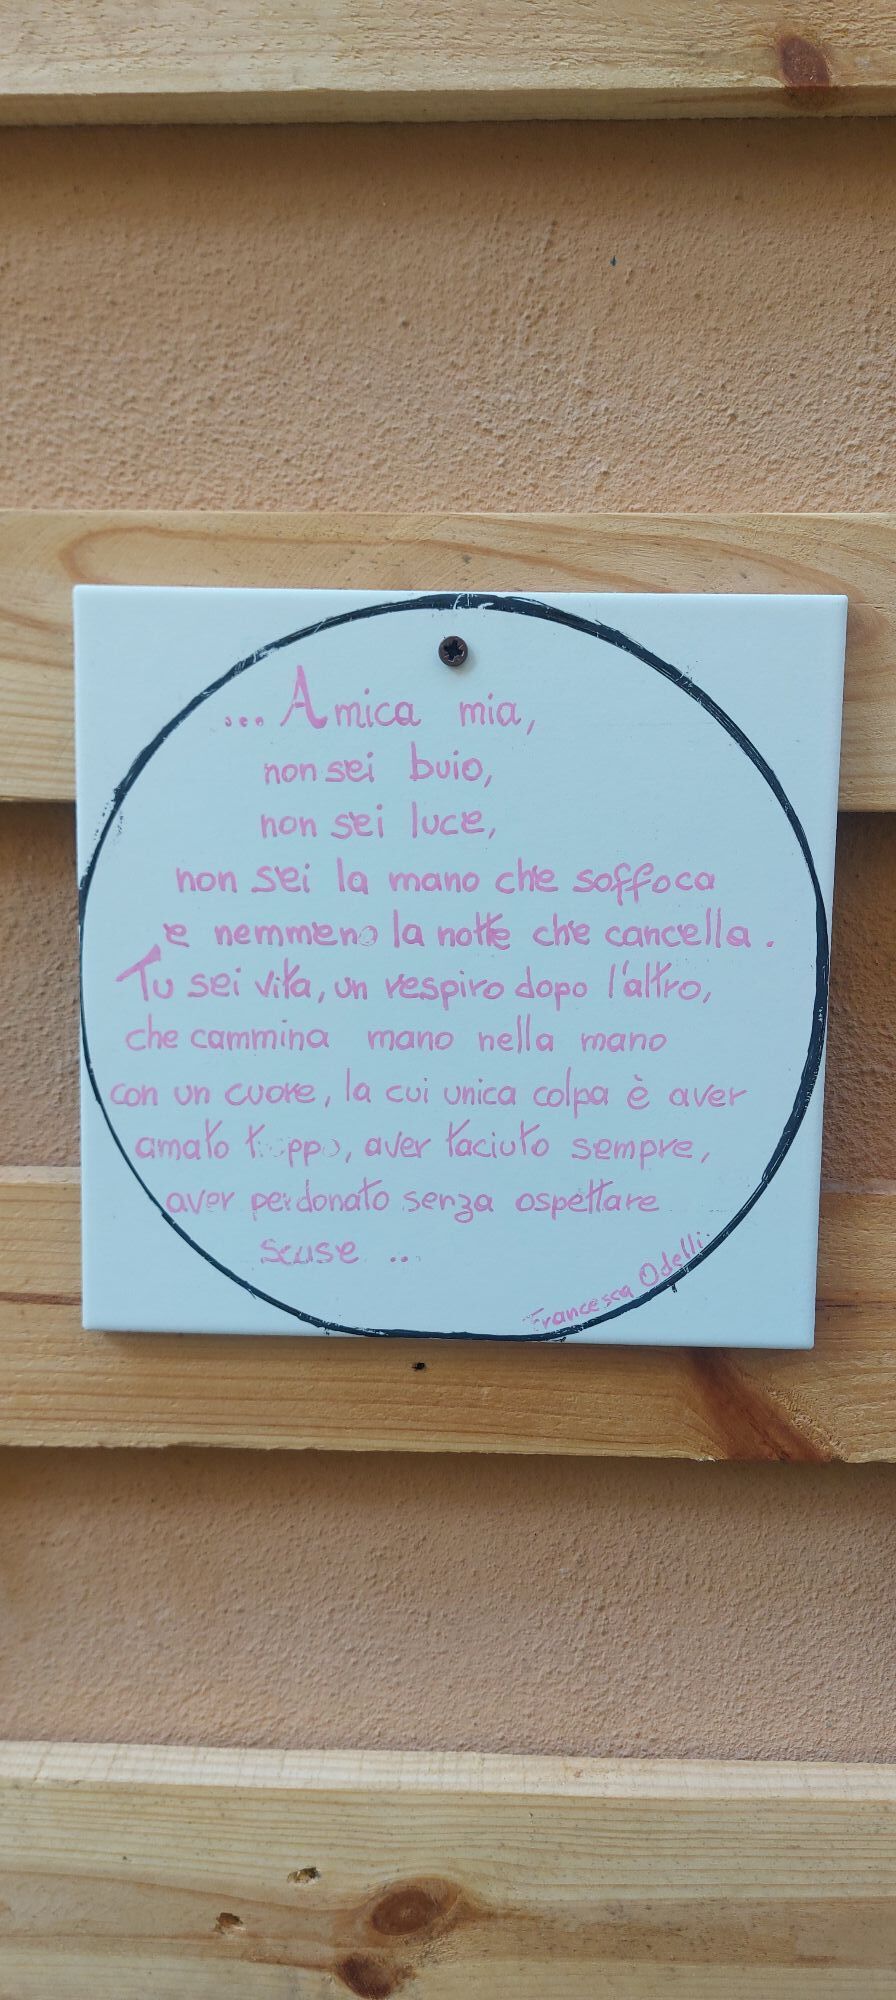 ...Amica mia,
non sei buio,
non sei luce,
non sei la mano che soffoca
e nemmeno la notte che cancella.
Tu sei vita, un respiro dopo l'altro,
che cammina mano nella mano
con un cuore, la cui unica colpa è aver
amato troppo, aver taciuto sempre,
aver perdonato senza aspettare
scuse ..
Francesca Odelli